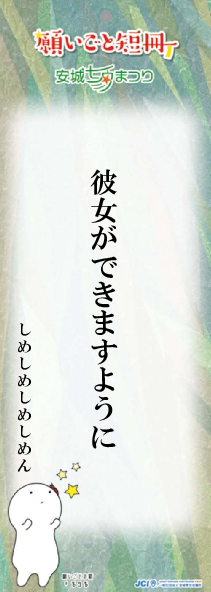 願いごと短冊
安城七夕まつり
彼女ができますように
しめしめしめしめん
JCI